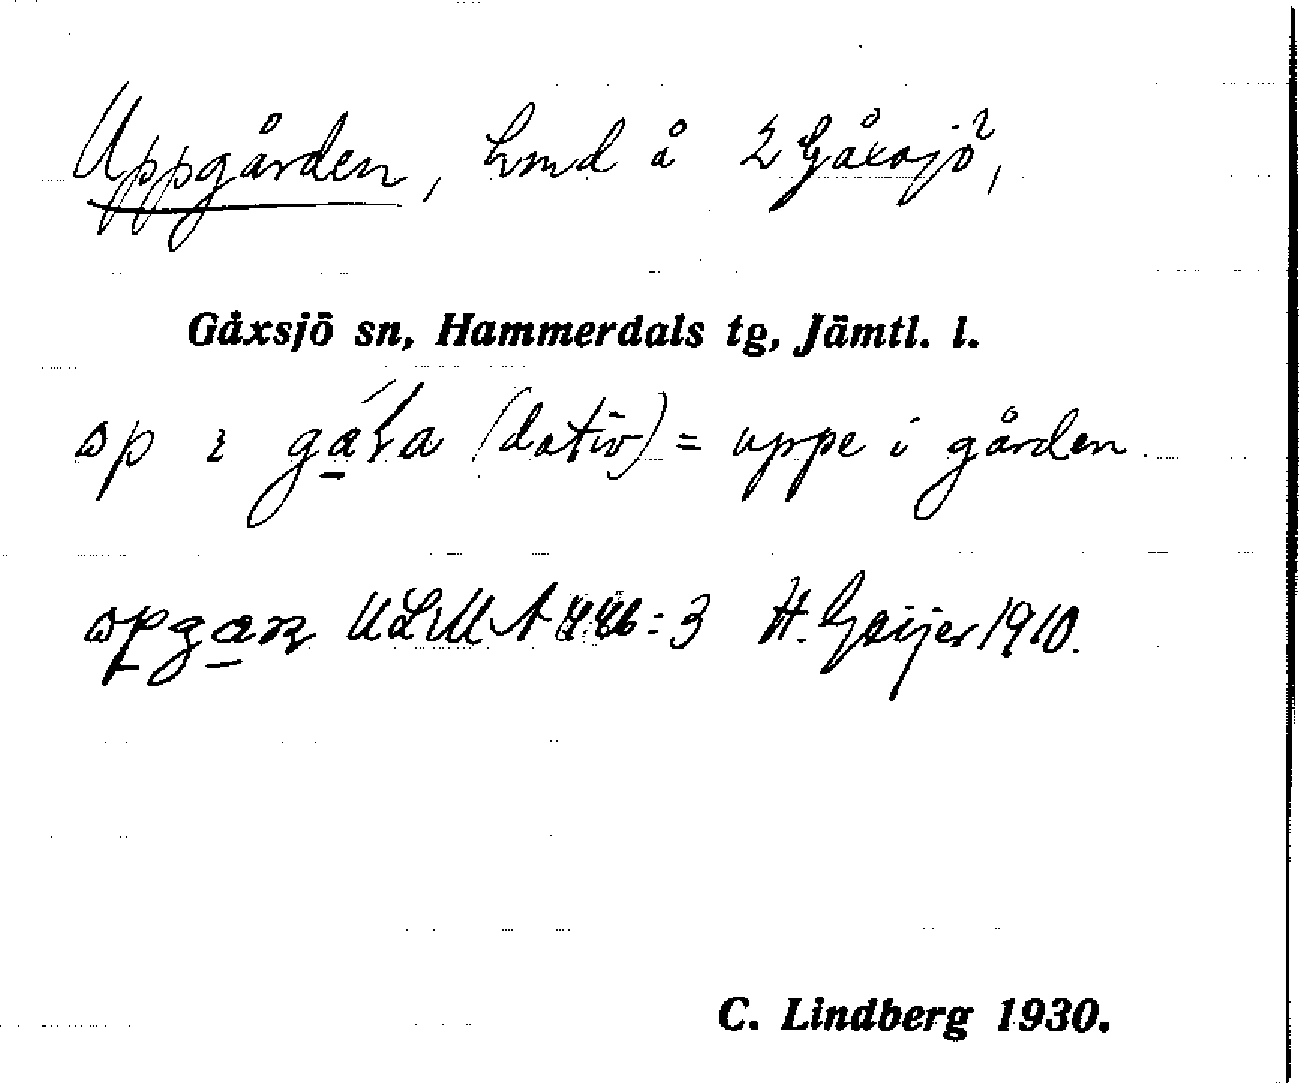 Uppgården, hmd å 2 Gåxsjö²,
Gåxsjö sn, Hammerdals tg, Jämtl. l.
(dativ) = uppe i gården.
ULMA 446:3 H. Geijer 1910.
C. Lindberg 1930.